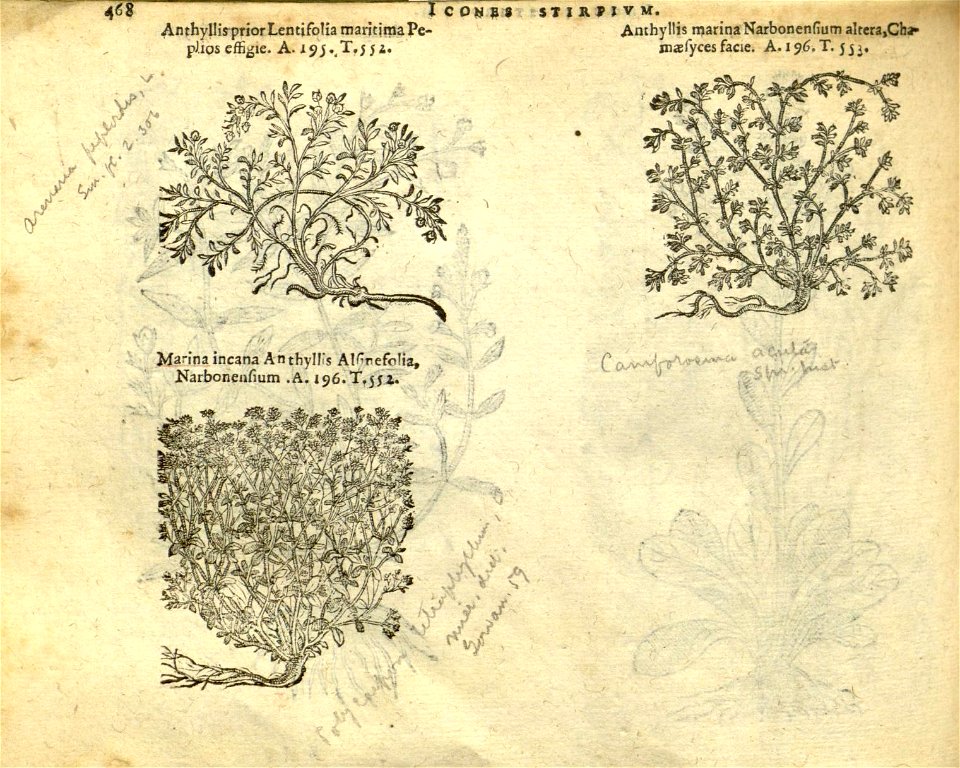 468
ICONES STIRPIVM.
Anthyllis prior Lentifolia maritima Pe-
plios effigie. A. 195. T. 552.
Anthyllis marina Narbonenſium altera, Cha-
mæſyces facie. A. 196. T. 553.
Arenaria peploides, L.
Marina incana Anthyllis Alſinefolia,
Narbonenſium . A. 196. T. 552.
Camforosma acuta
Polycarpon tetraphyllum,
Gouan. 59